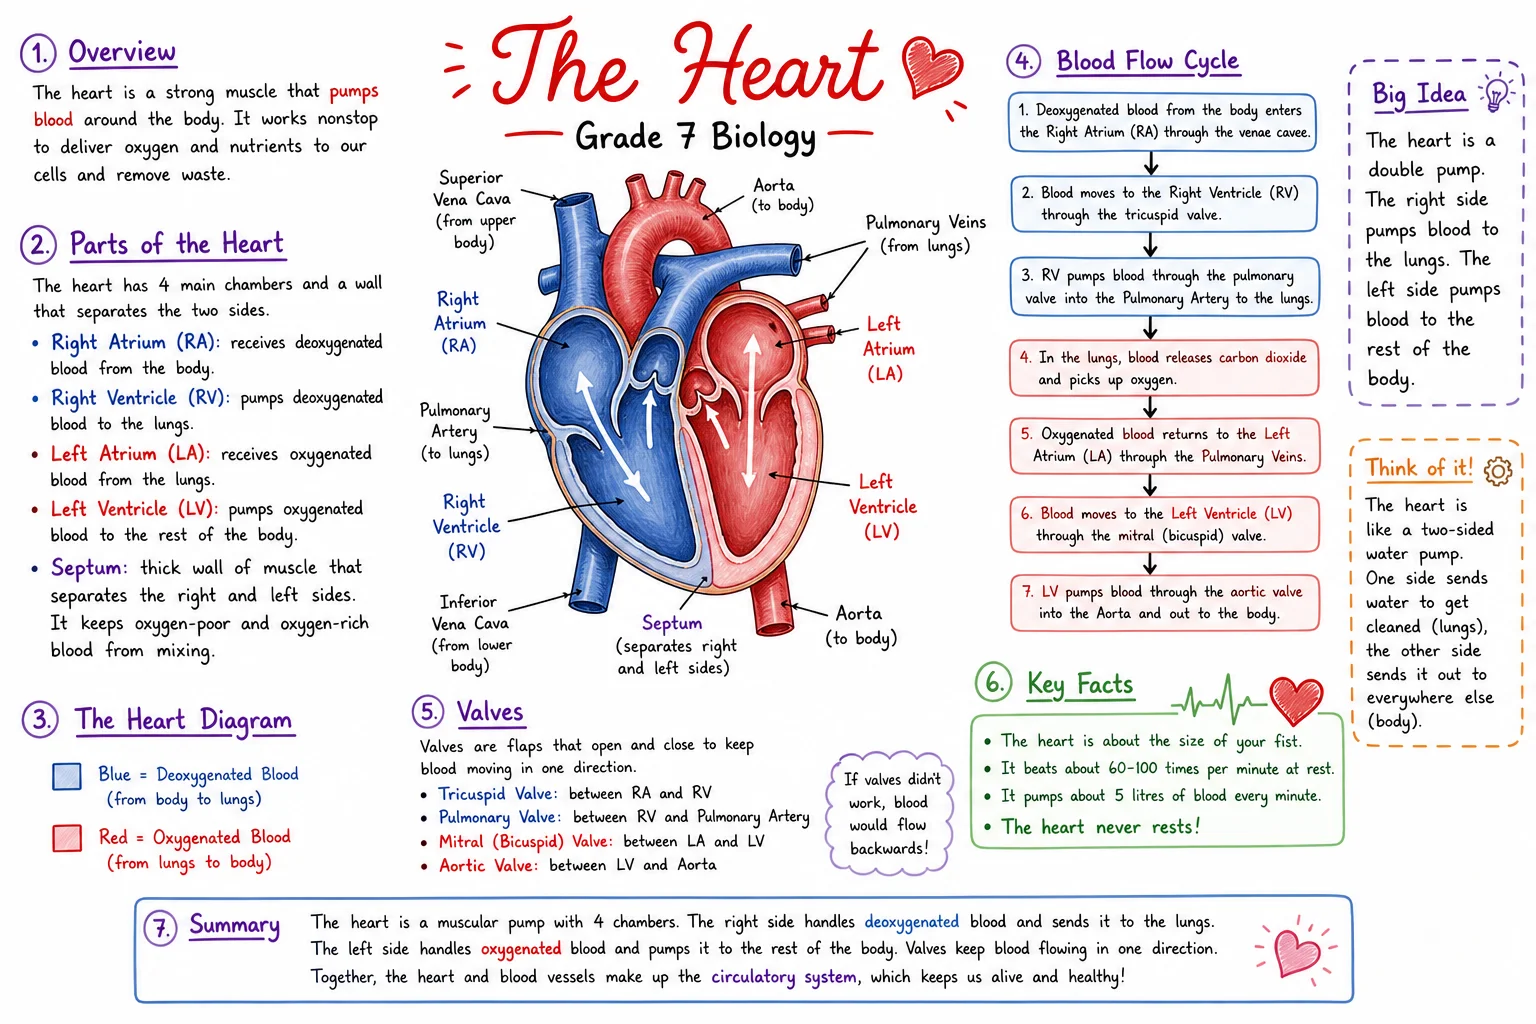 The Heart
Grade 7 Biology
1. Overview
The heart is a strong muscle that pumps
blood around the body. It works nonstop
to deliver oxygen and nutrients to our
cells and remove waste.
2. Parts of the Heart
The heart has 4 main chambers and a wall
that separates the two sides.
• Right Atrium (RA): receives deoxygenated
blood from the body.
• Right Ventricle (RV): pumps deoxygenated
blood to the lungs.
• Left Atrium (LA): receives oxygenated
blood from the lungs.
• Left Ventricle (LV): pumps oxygenated
blood to the rest of the body.
• Septum: thick wall of muscle that
separates the right and left sides.
It keeps oxygen-poor and oxygen-rich
blood from mixing.
3. The Heart Diagram
Blue = Deoxygenated Blood
(from body to lungs)
Red = Oxygenated Blood
(from lungs to body)
Superior
Vena Cava
(from upper
body)
Aorta
(to body)
Pulmonary Veins
(from lungs)
Right
Atrium
(RA)
Left
Atrium
(LA)
Pulmonary
Artery
(to lungs)
Right
Ventricle
(RV)
Left
Ventricle
(LV)
Inferior
Vena Cava
(from lower
body)
Septum
(separates right
and left sides)
Aorta
(to body)
4. Blood Flow Cycle
1. Deoxygenated blood from the body enters
the Right Atrium (RA) through the venae cavee.
2. Blood moves to the Right Ventricle (RV)
through the tricuspid valve.
3. RV pumps blood through the pulmonary
valve into the Pulmonary Artery to the lungs.
4. In the lungs, blood releases carbon dioxide
and picks up oxygen.
5. Oxygenated blood returns to the Left
Atrium (LA) through the Pulmonary Veins.
6. Blood moves to the Left Ventricle (LV)
through the mitral (bicuspid) valve.
7. LV pumps blood through the aortic valve
into the Aorta and out to the body.
Big Idea
The heart is a
double pump.
The right side
pumps blood to
the lungs. The
left side pumps
blood to the
rest of the
body.
Think of it!
The heart is
like a two-sided
water pump.
One side sends
water to get
cleaned (lungs),
the other side
sends it out to
everywhere else
(body).
5. Valves
Valves are flaps that open and close to keep
blood moving in one direction.
• Tricuspid Valve: between RA and RV
• Pulmonary Valve: between RV and Pulmonary Artery
• Mitral (Bicuspid) Valve: between LA and LV
• Aortic Valve: between LV and Aorta
If valves didn't
work, blood
would flow
backwards!
6. Key Facts
• The heart is about the size of your fist.
• It beats about 60-100 times per minute at rest.
• It pumps about 5 litres of blood every minute.
• The heart never rests!
7. Summary
The heart is a muscular pump with 4 chambers. The right side handles deoxygenated blood and sends it to the lungs.
The left side handles oxygenated blood and pumps it to the rest of the body. Valves keep blood flowing in one direction.
Together, the heart and blood vessels make up the circulatory system, which keeps us alive and healthy!